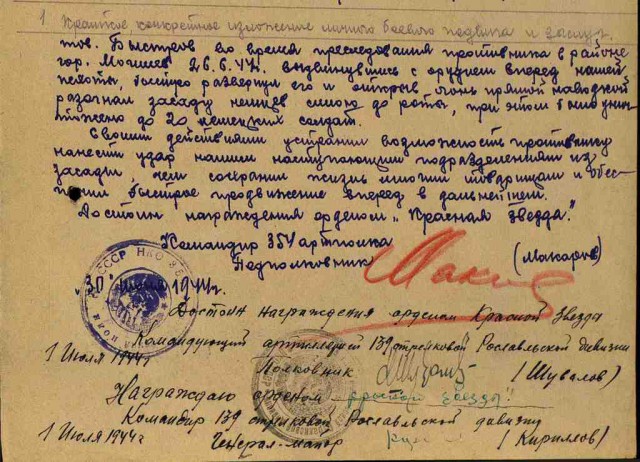 1 Краткое, конкретное изложение личного боевого подвига и заслуг.
тов. Быстров во время преследования противника в районе
гор. Могилев 26.6.44. выдвинувшись с орудием вперед нашей
пехоты, быстро развернул его и открыв огонь прямой наводкой
разогнал засаду немцев до роты, при этом было унич
тожено до 20 немецких солдат.
Своими действиями устранил возможность противнику
нанести удар нашим наступающим подразделениям из
засады, чем сохранил жизнь многим товарищам и обес
печил быстрое продвижение вперед в дальнейшем.
Достоин награждения орденом „Красная звезда".
Командир 354 артполка
Подполковник (Макаров)
30 июня 1944г.
Достоин награждения орденом Красной Звезда
Командующий артиллерией 139 стрелковой Рославльской дивизии
1 Июля 1944г
Полковник (Шувалов)
Награждаю орденом „Красной звезда"
Командир 139 стрелковой Рославльской дивизии
1 Июля 1944г Генерал-майор (Кириллов)